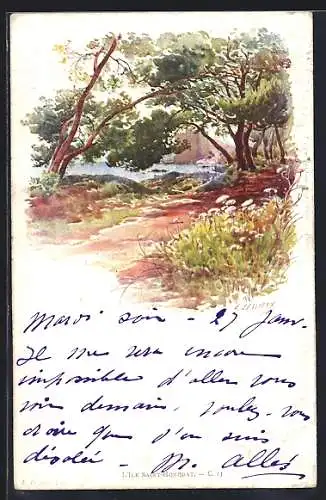 Mardi soir - 27 Janv.
Il me sera encore
impossible d'aller vous
voir demain. Voulez-vous
croire que j'en suis
désolée - M. Allès
L'ILE SAINT-HONORAT. - C. 11